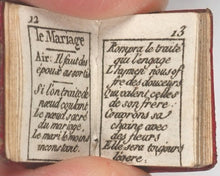 12
le Mariage
Air: Il faut des
époux assortis
Si l'on traite de
nœud coulant
Le nœud sacré
du mariage,
Le mari le moins
inconstant.
13
Rompra le traité
qui l'engage
L'hymen nous of
fre des douceurs
Qui valent celles
de son frère:
Couvrons sa
chaîne avec
des fleurs
Elle sera toujours
légère.